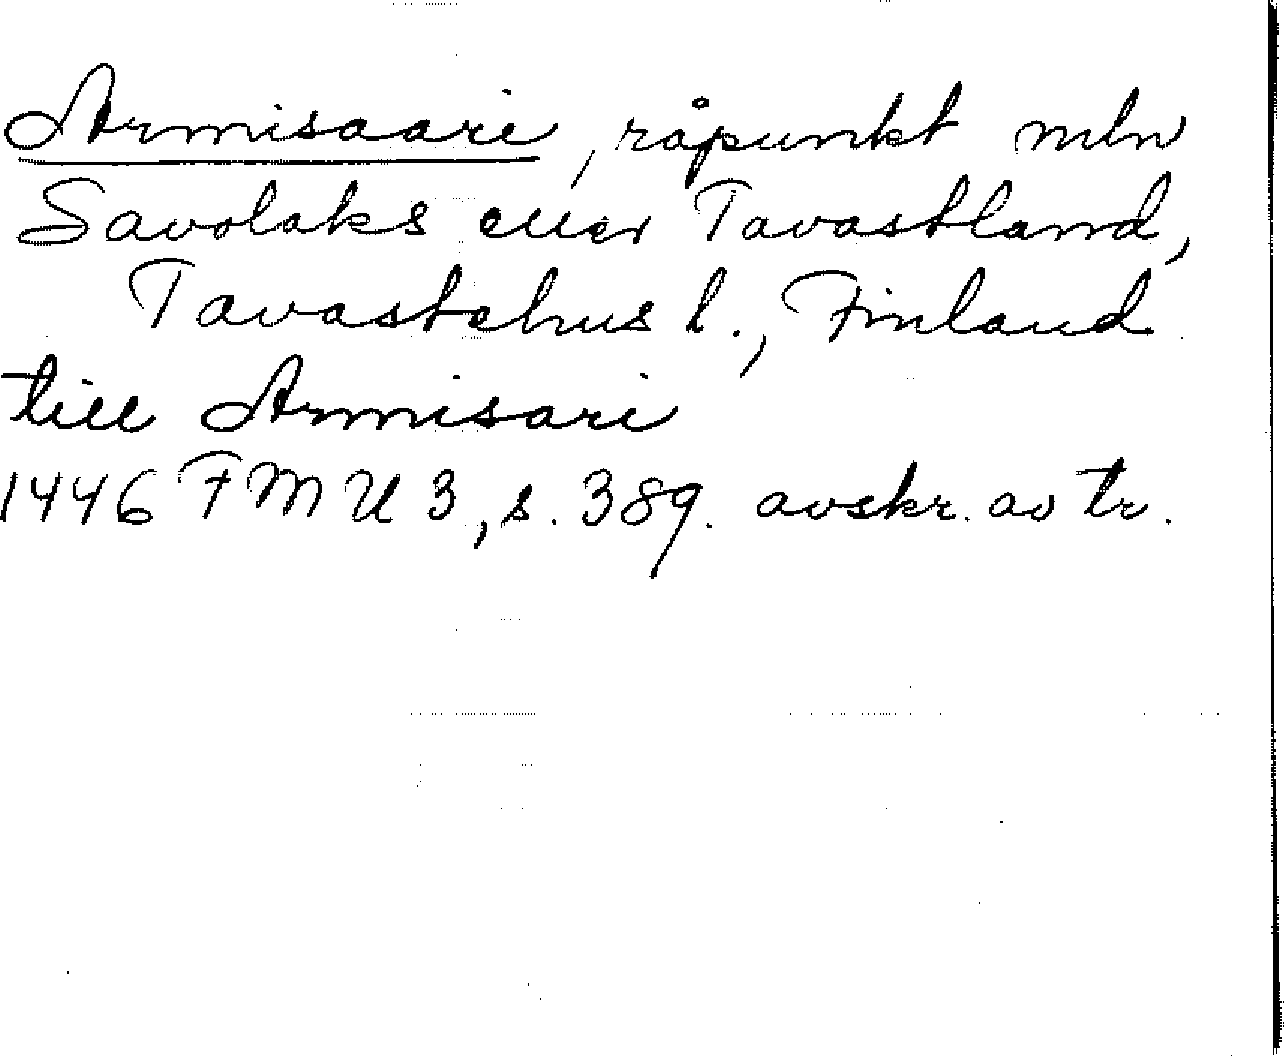 Armisaari, råpunkt mln
Savolaks eller Tavastland,
Tavastehus l., Finland
till Armisari
1446 FMU 3, s. 389. avskr. av tr.